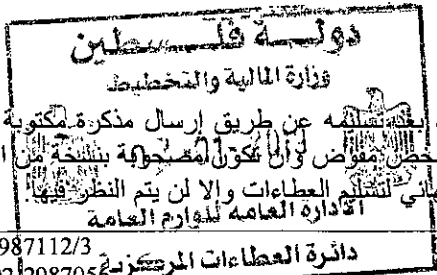 دولة فلسطين
وزارة المالية والتخطيط
بعد تسليمه عن طريق إرسال مذكرة مكتوبة
مفوض وأن تكون مصحوبة بنسخة من
لتسليم العطاءات والا لن يتم النظر فيها
الادارة العامه للوازم العامة
987112/3
دائرة العطاءات المركزية